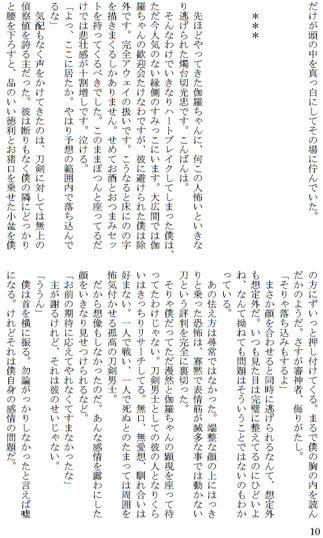 だけが頭の中を真っ白にしてその場に佇んでいた。
***
先ほどやってきた伽羅ちゃんに、何こいつ怖いといきな
り逃げられた燭台切光忠です。こんばんは。
そんなわけでいきなりハートブレイクしてしまった僕は、
ただ今人気のない縁側のすみっこにいます。大広間では伽
羅ちゃんの歓迎会たけなわですが、彼に避けられた僕は除
外です。完全アウェイの扱いです。こうなると床にのの字
を描きまくるしかありません。せめてお酒とおつまみセッ
トを持ってくるべきでした。このままぽつんと座ってるだ
けでは悲壮感が十割増しです。泣ける。
「よっ、ここに居たか。やはり予想の範囲内で落ち込んで
るな」
気配もなく声をかけてきたのは、刀剣に対しては無上の
偵察値を誇る主だった。彼は断りもなく僕の隣にどっかり
と腰を下ろすと、品のいい徳利とお猪口を乗せた小盆を僕
の方にずいっと押し付けてくる。まるで僕の胸の内を読ん
だかのようだ。さすが審神者、侮りがたし。
「そりゃ落ち込みもするよ」
まさか顔を合わせると同時に逃げられるなんて、想定外
も想定外だ。いつも見た目は完璧に整えてるのにひどいよ
ね、なんて拗ねても問題はそういうことではないのもわか
っている。
あの怯え方は尋常ではなかった。端整な顔の上にはっき
りと乗った恐怖は、寡黙で表情筋が滅多な事では動かない
刀という評判を完全に裏切った。
そりゃ僕だってただ漫然と伽羅ちゃんの顕現を座って待
ってたわけじゃない。刀剣男士としての彼の人となりくら
いはきっちりリサーチしてる。無口、無愛想、馴れ合いは
好まない。一人で戦い、一人で死ぬとのたまっては周囲を
怖気付かせる孤高の刀剣男士。
だから想像もしなかったのだ。あんな感情を露わにした
顔をいきなり見せつけられるなど。
「お前の期待に応えてやれなくてすまなかったな」
主が謝るけれど、それは彼のせいじゃない。
「ううん」
僕は首を横に振る。勿論がっかりしなかったと言えば嘘
になる。けれどそれは僕自身の感情の問題だ。
10